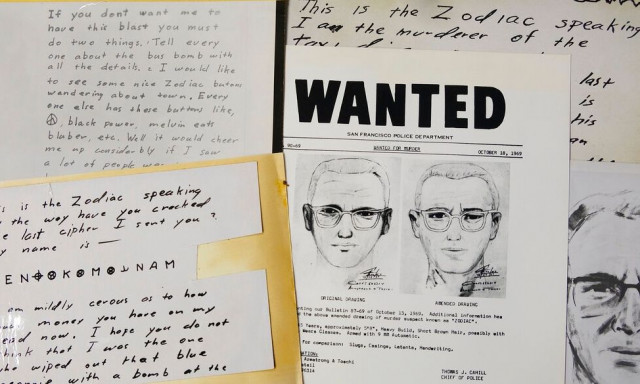 If you dont want me to
have this blast you must
do two things. Tell every
one about the bus bomb with
all the details. 2 I would like
to see some nice Zodiac butons
wandering about town. Every
one else has these buttons like,
black power, melvin eats
bluber, etc. Well it would cheer
me up considerbly if I saw
a lot of people
This is the Zodiac speaking
I am the murderer of the
last
is
his
an
WANTED
SAN FRANCISCO POLICE DEPARTMENT
WANTED FOR MURDER
OCTOBER 18, 1969
ORIGINAL DRAWING
AMENDED DRAWING
our Bulletin 87-69 of October 13, 1969. Additional information has
the above amended drawing of murder suspect known as "ZODIAC".
Years, approximately 5'8", Heavy Build, Short Brown Hair, possibly with
Glasses. Armed with 9 MM Automatic.
For comparison: Slugs, Casings, Latents, Handwriting.
Armstrong & Toschi
THOMAS J. CAHILL
CHIEF OF POLICE
is is the Zodiac speaking
the way have you cracked
last cipher I sent you?
name is —
am mildly cerous as to how
money you have on my
now. I hope you do not
think that I was the one
who wiped out that blue
with a bomb at the